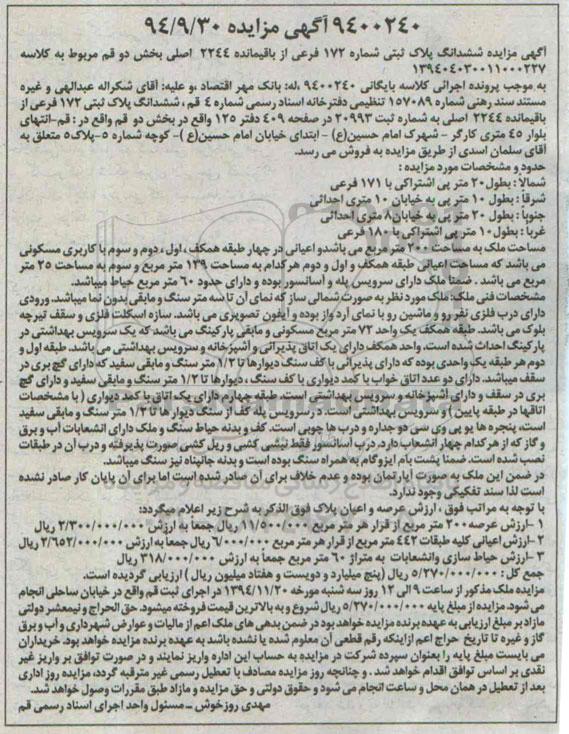 ۹۴۰۰۲۴۰ آگهی مزایده ۹۴/۹/۳۰
آگهی مزایده ششدانگ پلاک ثبتی شماره ۱۷۲ فرعی از باقیمانده ۲۲۴۴ اصلی بخش دو قم مربوط به کلاسه
۱۳۹۴۰۴۰۳۰۰۱۱۰۰۰۲۳۷
به موجب پرونده اجرائی کلاسه بایگانی ۹۴۰۰۲۴۰ ،له: بانک مهر اقتصاد ،و علیه: آقای شکراله عبدالهی و غیره
مستند سند رهنی شماره ۱۵۷۰۸۹ تنظیمی دفترخانه اسناد رسمی شماره ۴ قم ، ششدانگ پلاک ثبتی ۱۷۲ فرعی از
باقیمانده ۲۲۴۴ اصلی به شماره ثبت ۲۰۹۹۳ در صفحه ۴۰۹ دفتر ۱۲۵ واقع در بخش دو قم واقع در : قم-انتهای
بلوار ۴۵ متری کارگر - شهرک امام حسین(ع) - ابتدای خیابان امام حسین(ع )- کوچه شماره ۵-پلاک۵ متعلق به
آقای سلمان اسدی از طریق مزایده به فروش می رسد.
حدود و مشخصات مورد مزایده :
شمالا : بطول۲۰ متر پی اشتراکی با ۱۷۱ فرعی
شرقا : بطول ۱۰ متر پی به خیابان ۱۰ متری احداثی
جنوبا : بطول ۲۰ متر پی به خیابان۸ متری احداثی
غربا : بطول ۱۰ متر پی اشتراکی با ۱۸۰ فرعی
مساحت ملک به مساحت ۲۰۰ متر مربع می باشدو اعیانی در چهار طبقه همکف ، اول ، دوم و سوم با کاربری مسکونی
می باشد که مساحت اعیانی طبقه همکف و اول و دوم هرکدام به مساحت ۱۳۹ متر مربع و سوم به مساحت ۲۵ متر
مربع می باشد . ضمنا ملک دارای سرویس پله و آسانسور بوده و دارای حدود ۶۰ متر مربع حیاط میباشد.
مشخصات فنی ملک: ملک مورد نظر به صورت شمالی ساز که نمای آن تا سه متر سنگ و مابقی بدون نما میباشد. ورودی
دارای درب فلزی نفر رو و ماشین رو با نمای آرد واز بوده و آیفون تصویری می باشد. سازه اسکلت فلزی و سقف تیرچه
بلوک می باشد. طبقه همکف یک واحد ۷۲ متر مربع مسکونی و مابقی پارکینگ می باشد که یک سرویس بهداشتی در
پارکینگ احداث شده است. واحد همکف دارای یک اتاق پذیرائی و آشپزخانه و سرویس بهداشتی می باشد. طبقه اول و
دوم هر طبقه یک واحدی بوده که دارای پذیرائی با کف سنگ دیوارها تا ۱/۲ متر سنگ و مابقی سفید که دارای گچ بری در
سقف میباشد. دارای دو عدد اتاق خواب با کمد دیواری با کف سنگ ، دیوارها تا ۱/۲ متر سنگ و مابقی سفید و دارای گچ
بری در سقف و دارای آشپزخانه و سرویس بهداشتی است. طبقه چهارم دارای یک اتاق با کمد دیواری ( با مشخصات
اتاقها در طبقه پایین ) و سرویس بهداشتی است. در سرویس پله کف از سنگ دیوار ها تا ۱/۲ متر سنگ و مابقی سفید
است، پنجره ها یو پی وی سی دو جداره و درب ها چوبی است. کف و بدنه حیاط سنگ و ملک دارای انشعابات آب و برق
و گاز که از هرکدام چهار انشعاب دارد، درب آسانسور فقط نبشی کشی و ریل کشی صورت پذیرفته و درب آن در طبقات
نصب شده است. ضمنا پشت بام ایزوگام به همراه سنگ بوده است و بدنه جانپناه نیز سنگ میباشد.
در ضمن این ملک به صورت آپارتمان بوده و عدم خلاف برای آن صادر شده است اما برای آن پایان کار صادر نشده
است لذا سند تفکیکی وجود ندارد.
با توجه به مراتب فوق ، ارزش عرصه و اعیان پلاک فوق الذکر به شرح زیر اعلام میگردد:
۱ -ارزش عرصه ۲۰۰ متر مربع از قرار هر متر مربع ۱۱/۵۰۰/۰۰۰ ریال جمعا به ارزش ۲/۳۰۰/۰۰۰/۰۰۰ ریال
۲ -ارزش اعیانی کلیه طبقات ۴۴۲ متر مربع از قرار هر متر مربع ۶/۰۰۰/۰۰۰ ریال جمعا به ارزش ۲/۶۵۲/۰۰۰/۰۰۰ ریال
۳ -ارزش حیاط سازی وانشعابات به متراژ ۶۰ متر مربع جمعا به ارزش ۳۱۸/۰۰۰/۰۰۰ ریال
جمع کل : ۵/۲۷۰/۰۰۰/۰۰۰ ریال (پنج میلیارد و دویست و هفتاد میلیون ریال ) ارزیابی گردیده است.
مزایده ملک مذکور از ساعت ۹ الی ۱۲ روز سه شنبه مورخه ۱۳۹۴/۱۱/۲۰ در اجرای ثبت قم واقع در خیابان ساحلی انجام
می شود. مزایده از مبلغ پایه ۵/۲۷۰/۰۰۰/۰۰۰ ریال شروع و به بالاترین قیمت فروخته میشود. حق الحراج و نیمعشر دولتی
مازاد بر مبلغ ارزیابی به عهده برنده مزایده خواهد بود در ضمن بدهی های ملک اعم از مالیات و عوارض شهرداری و آب و برق
گاز و غیره تا تاریخ حراج اعم ازاینکه رقم قطعی آن معلوم شده یا نشده باشد به عهده برنده مزایده خواهد بود. خریداران
می بایست مبلغ پایه را بعنوان سپرده شرکت در مزایده به حساب این اداره واریز نمایند و در صورت توافق بر واریز غیر
نقدی بر اساس توافق اقدام خواهد شد . و چنانچه روز مزایده مصادف با تعطیل رسمی غیر مترقبه گردد، مزایده روز اداری
بعد از تعطیل در همان محل و ساعت انجام می شود و حقوق دولتی و حق مزایده و مازاد طبق مقررات وصول خواهد شد.
مهدی روزخوش - مسئول واحد اجرای اسناد رسمی قم